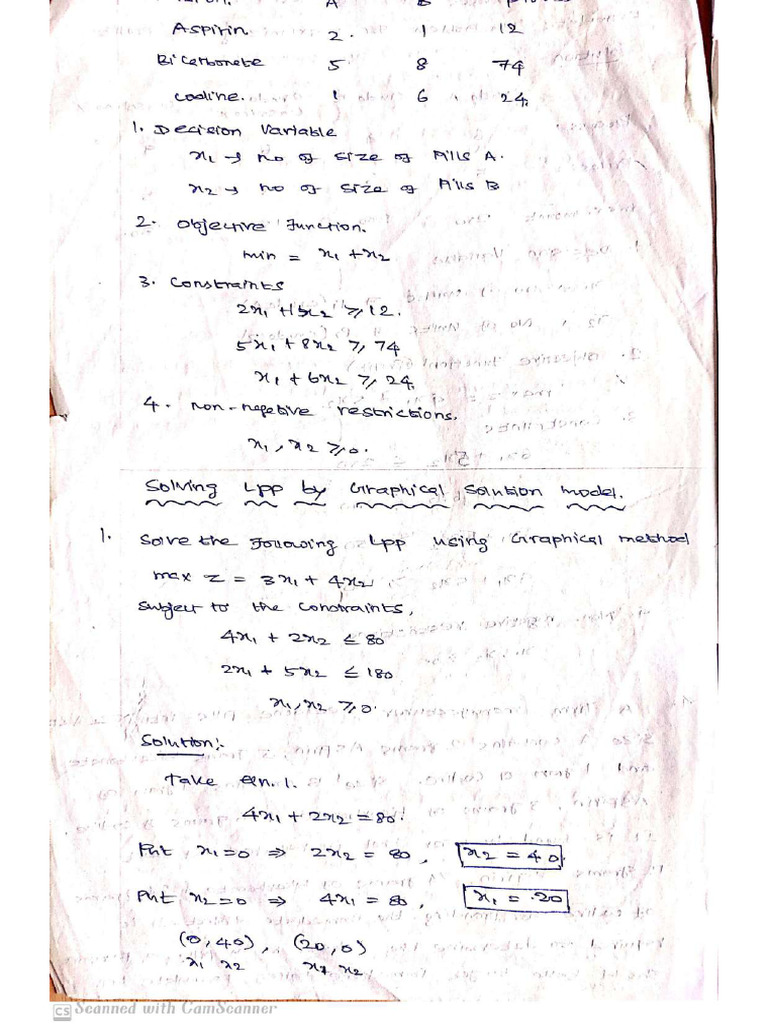 A B
Aspirin 2 1 12
Bicarbonate 5 8 74
codine. 1 6 24.
1. Decision Variable
x1 → no of size of Pills A.
x2 → no of size of Pills B
2. Objective Function.
min = x1 + x2
3. Constraints
2x1 + x2 ≥ 12.
5x1 + 8x2 ≥ 74
x1 + 6x2 ≥ 24.
4. non-negetive restrictions.
x1, x2 ≥ 0.
Solving Lpp by Graphical Solution model.
1. Solve the Following Lpp using Graphical method
max Z = 3x1 + 4x2
Subject to the constraints,
4x1 + 2x2 ≤ 80
2x1 + 5x2 ≤ 180
x1, x2 ≥ 0.
Solution:-
Take Eqn. 1.
4x1 + 2x2 = 80.
Put x1 = 0 ⇒ 2x2 = 80, x2 = 40.
Put x2 = 0 ⇒ 4x1 = 80, x1 = 20
(0, 40), (20, 0)
x1 x2 x1 x2
CS Scanned with CamScanner